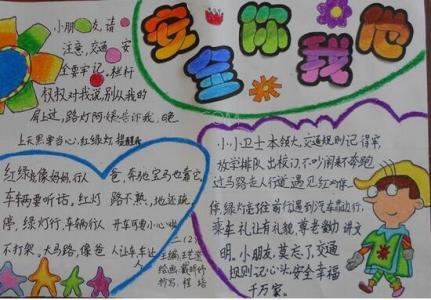 安全你我他
小朋友,请
注意,交通安
全要牢记。栏杆
杈杈对我说,别从我的
肩上过,路灯阿姨告诉我,晚
上天黑要当心,红绿灯提醒我
红绿灯像妈妈,行人
车辆要听话,红灯
停,绿灯行,车辆行人
不打架。大马路,像爸
爸,奔驰宝马也靠它,
路不熟,地还疏,
开车可要小心呐
人让车,车让
人
二(2)
主编:王艺莹
绘画:
抄写:程培
小小卫士本领大,交通规则记得牢,
放学排队出校门,不吵闹来不奔跑
过马路走人行道,遇见红灯停
停,绿灯走,车前行遇到汽车靠边行,
乘车礼让有礼貌,尊老爱幼讲文
明。小朋友,莫忘了,交通
规则记心头,安全幸福
千万家。